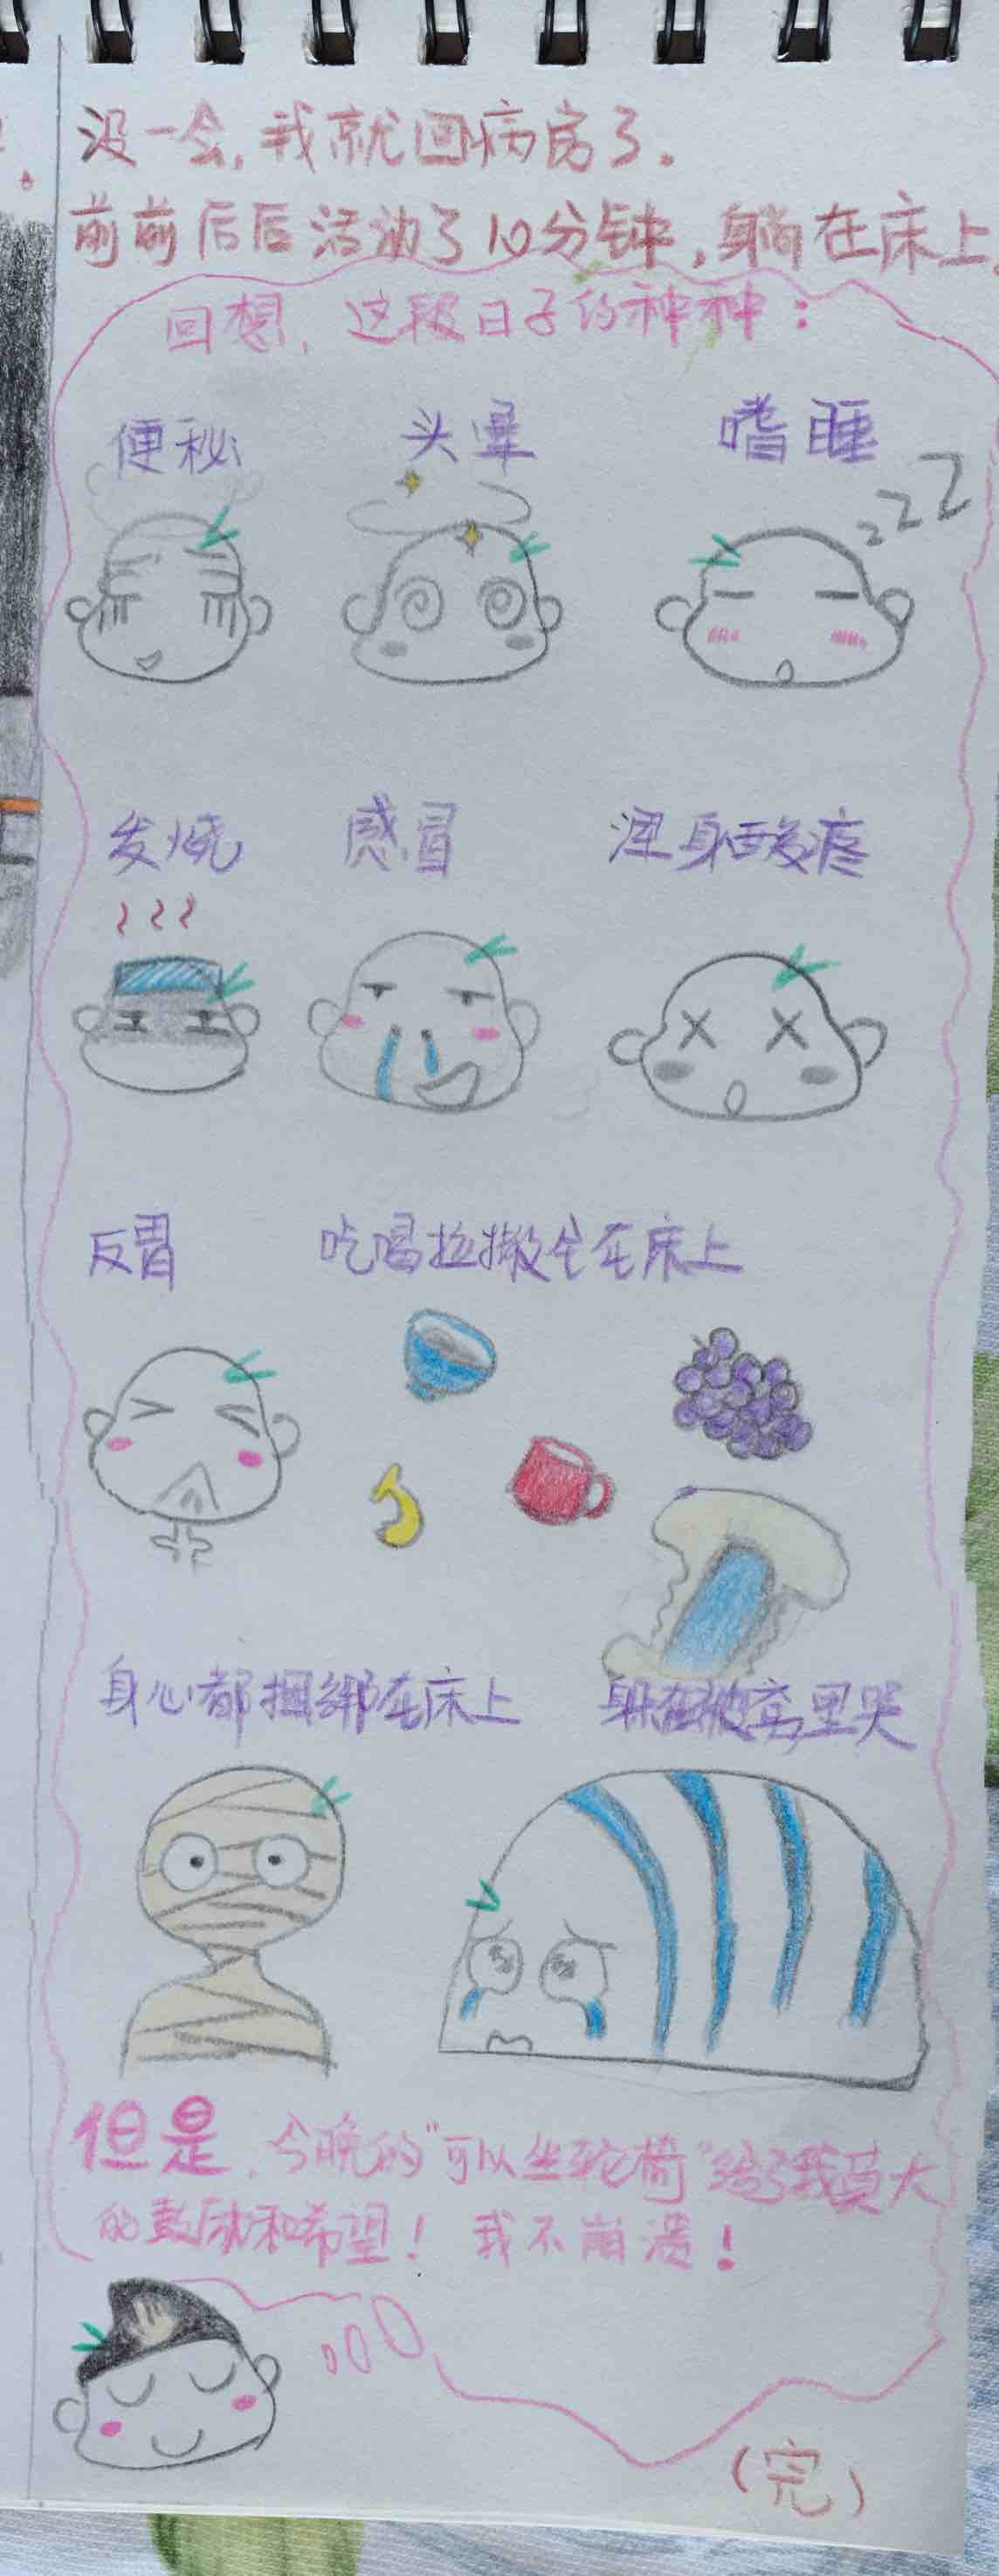 没一会,我就回病房了.
前前后后活动了10分钟,躺在床上,
回想,这段日子的种种:
便秘 头晕 嗜睡
zzZ
发烧 感冒 浑身酸疼
反胃 吃喝拉撒全在床上
身心都捆绑在床上 躲在被窝里哭
但是,今晚的"可以坐轮椅"给了我莫大
的鼓励和希望!我不崩溃!
(完)